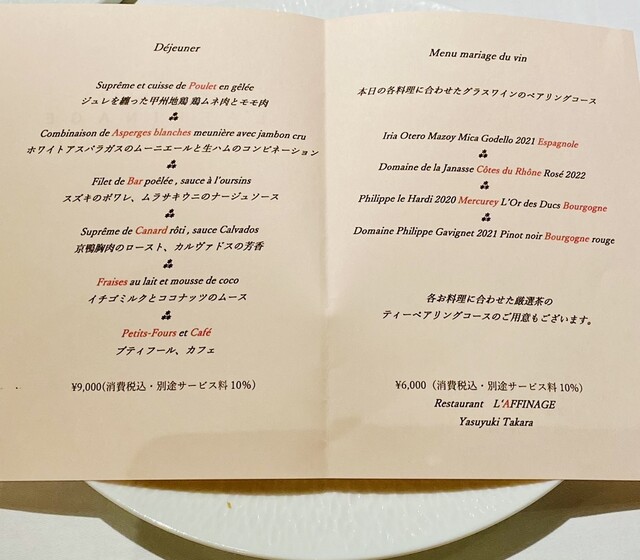 Déjeuner
Suprême et cuisse de Poulet en gêlée
ジュレを纏った甲州地鶏 鶏ムネ肉とモモ肉
Combinaison de Asperges blanches meunière avec jambon cru
ホワイトアスパラガスのムーニエールと生ハムのコンビネーション
Filet de Bar poêlée , sauce à l'oursins
スズキのポワレ、ムラサキウニのナージュソース
Suprême de Canard rôti , sauce Calvados
京鴨胸肉のロースト、カルヴァドスの芳香
Fraises au lait et mousse de coco
イチゴミルクとココナッツのムース
Petits-Fours et Café
プティフール、カフェ
¥9,000(消費税込・別途サービス料 10%)
Menu mariage du vin
本日の各料理に合わせたグラスワインのペアリングコース
Iria Otero Mazoy Mica Godello 2021 Espagnole
Domaine de la Janasse Côtes du Rhône Rosé 2022
Philippe le Hardi 2020 Mercurey L'Or des Ducs Bourgogne
Domaine Philippe Gavignet 2021 Pinot noir Bourgogne rouge
各お料理に合わせた厳選茶の
ティーペアリングコースのご用意もございます。
¥6,000（消費税込・別途サービス料 10%）
Restaurant L'AFFINAGE
Yasuyuki Takara